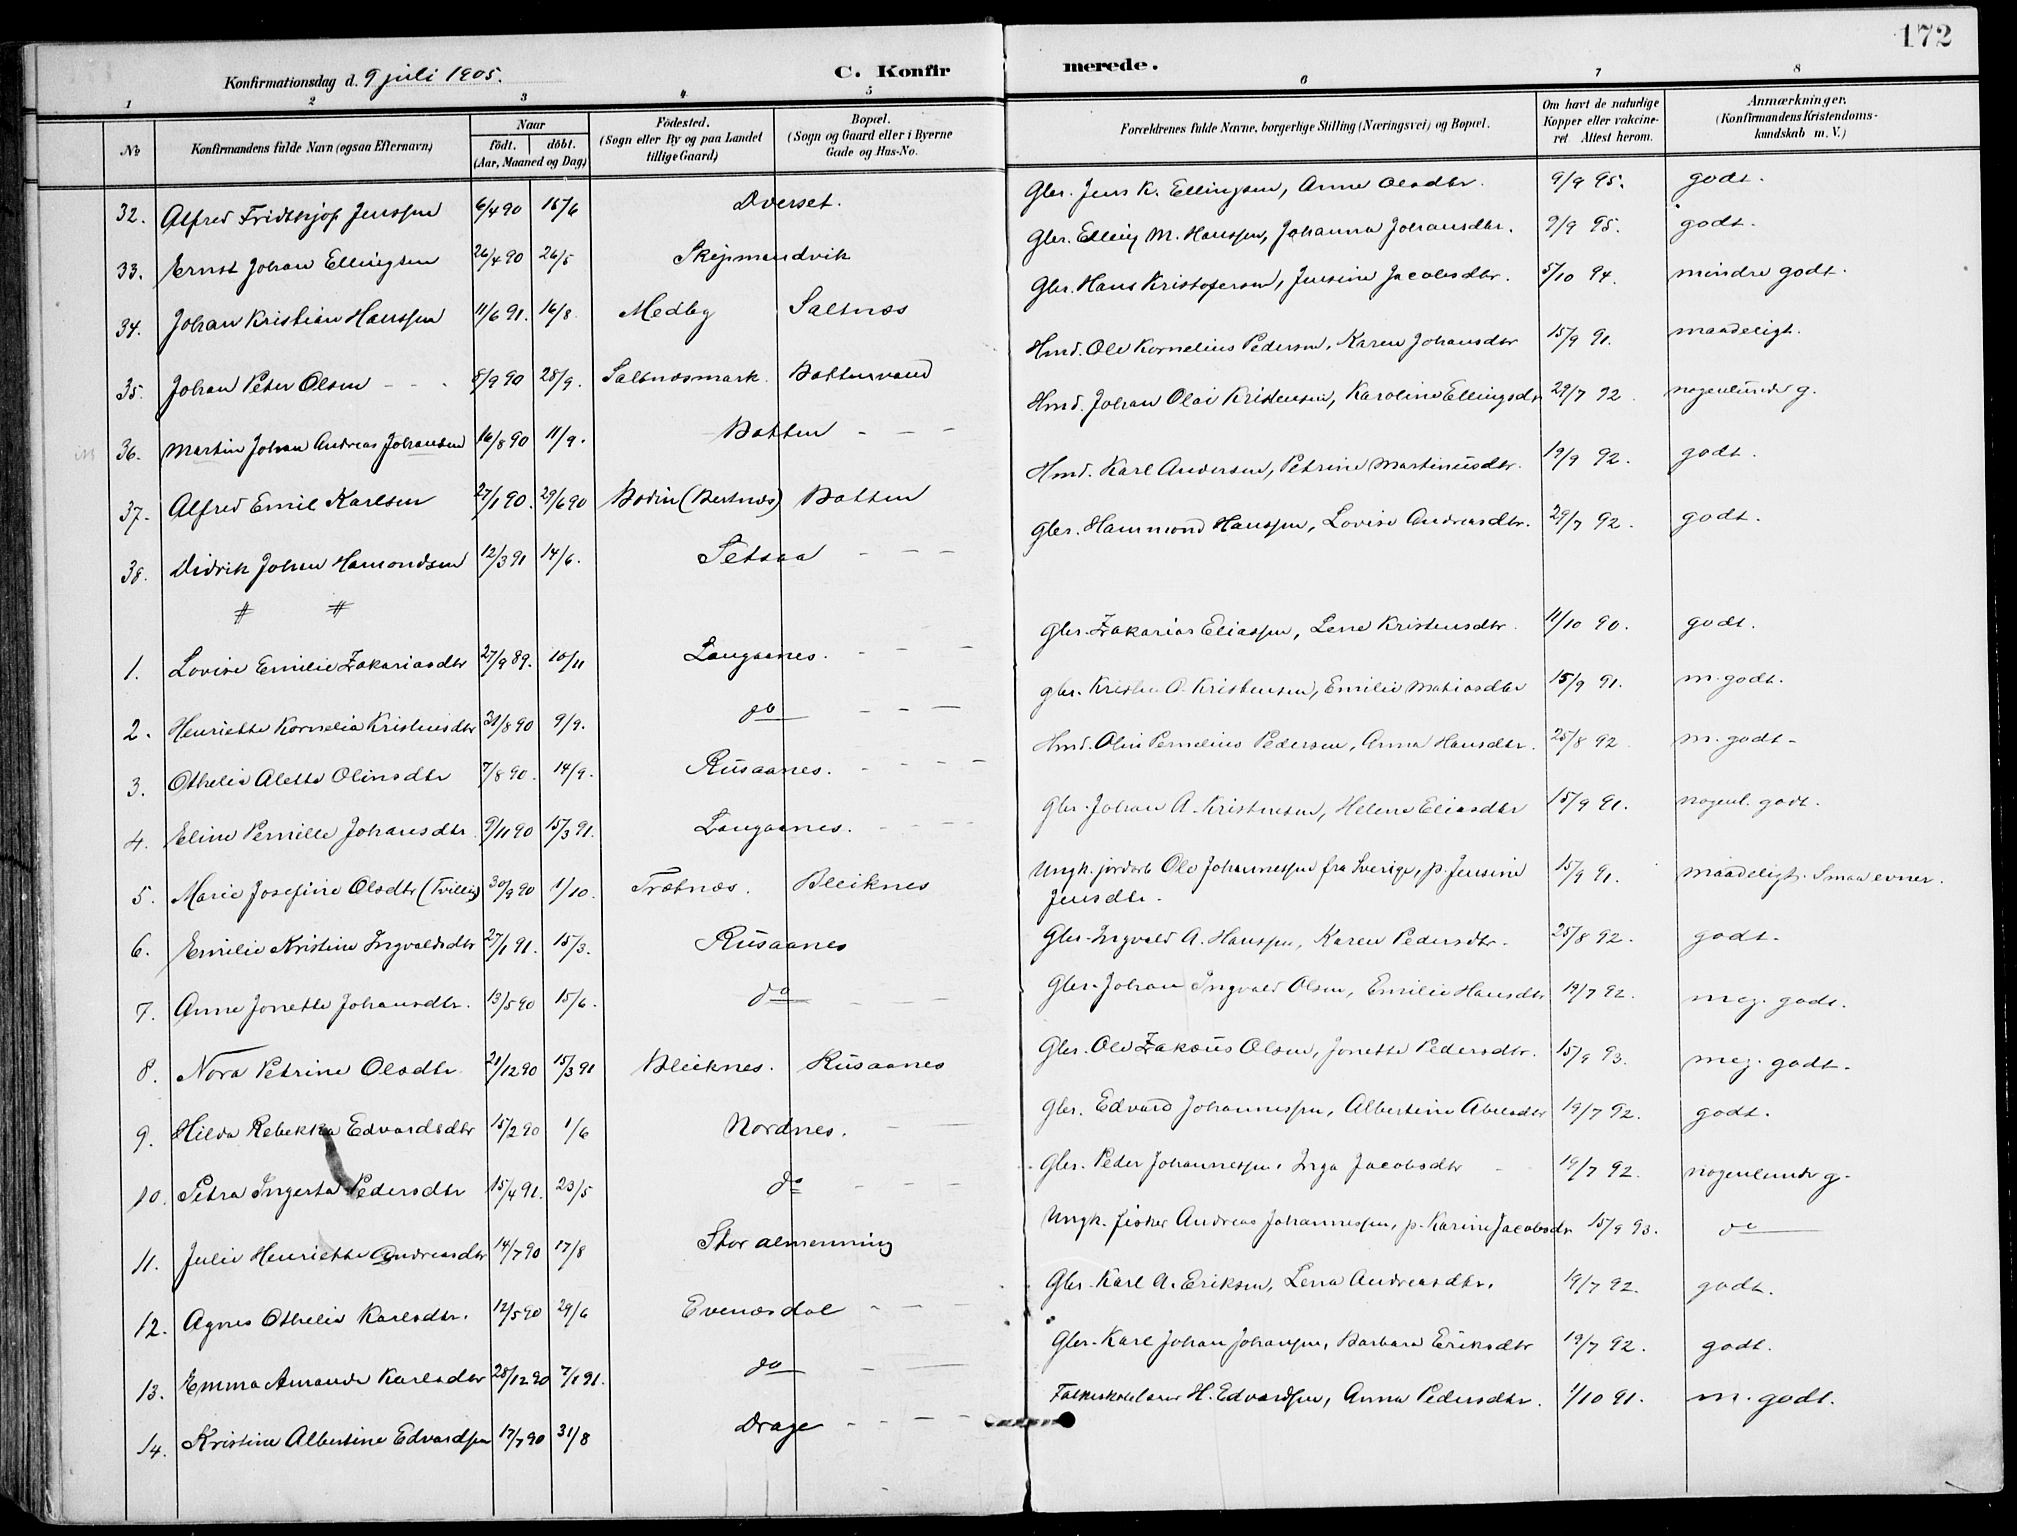 172
Konfirmationsdag d. 9 juli 1905.
C. Konfirmerede.
1 2 3 4 5 6 7 8
No
Konfirmandens fulde Navn (ogsaa Efternavn)
Naar
födt. döbt.
(Aar, Maaned og Dag)
Födested.
(Sogn eller By og paa Landet
tillige Gaard)
Bopæl.
(Sogn og Gaard eller i Byerne
Gade og Hus-No.
Forældrenes fulde Navne, borgerlige Stilling (Næringsvei) og Bopæl.
Om havt de naturlige
Kopper eller vakcine-
ret Attest herom.
Anmærkninger.
(Konfirmandens Kristendoms-
kundskab m. V.)
32. Alfred Fridtkjof Jenssen 6/4 90 15/6 Dverset. Gbr. Jens K. Ellingsen, Anne Olsdtr. 9/9 95. godt.
33. Ernst Johan Ellingsen 26/4 90 26/5 Skipmandvik Gbr. Elling M. Hanssen, Johanna Johansdtr. 9/9 95. godt.
34. Johan Kristian Hanssen 11/6 91. 16/8 Medby Saltnæs Gbr. Hans Kristofersen, Jensine Jacobsdtr. 5/10 94. mindre godt.
35. Johan Peter Olsen - - - 8/9 90 28/9. Saltnæsmark. Bottenvand Hmd. Ole Kornelius Pedersen, Karen Johansdtr 15/9 91. maadeligt.
36. Martin Johan Andreas Johansen 16/8 90 11/9. Botten - - - Hmd. Johan Olai Kristensen, Karoline Ellingsdtr 29/7 92. nogenlunde g.
37. Alfred Emil Karlsen 27/1 90. 29/6 90 Bodin (Bertnæs) Botten Hmd. Karl Andersen, Petrine Martinusdtr. 19/9 92. godt.
38. Didrik Johan Hamondsen 12/3 91 14/6. Setsaa - - - Gbr. Hammond Hanssen, Lovise Andreasdtr. 29/7 92. godt.
# #
1. Lovise Emilie Zakariasdtr 27/9 89. 10/11 Langaanes. - - - Gbr. Zakarias Eliassen, Lene Kristensdtr. 11/10 90. godt.
2. Henriette Kornelia Kristensdtr 31/8 90 9/9. do - - - Gbr. Kristen A. Kristensen, Emilie Matiasdtr 15/9 91. m. godt.
3. Othelie Alette Olinsdtr 7/8 90. 14/9. Rusaanes. - - - - Hmd. Olin Pernelius Pedersen, Anna Hansdtr. 25/8 92. m. godt.
4. Eline Pernille Johansdtr. 9/11 90 15/3 91. Langaanes. - - - Gbr. Johan A. Kristensen, Helene Eliasdtr 15/9 91. nogenl. godt.
5. Marie Josefine Olsdtr (Tvilling) 30/9 90 1/10. Trætnæs. Bleiknes Ungk. jordarb Ole Johannessen fra Sverige, p. Jensine
Jensdtr. 15/9 91. maadeligt. Smaa evner.
6. Emilie Kristine Ingvaldsdtr 27/1 91. 15/3. Rusaanes Gbr. Ingvald A. Hanssen, Karen Pedersdtr. 25/8 92. godt.
7. Anne Jonette Johansdtr. 13/5 90 15/6. do - - - Gbr. Johan Ingvald Olsen, Emilie Hansdtr 19/7 92. meg. godt.
8. Nora Petrine Olsdtr 21/12 90 15/3 91 Bleiknes. Rusaanes Gbr. Ole Zakæus Olsen, Jonette Pedersdtr. 15/9 93. meg. godt.
9. Hilda Rebekka Edvardsdtr 15/2 90 1/6 Nordnes. - - Gbr. Edvard Johannessen, Albertine Abelsdtr 19/7 92. godt.
10. Petra Ingerta Pedersdtr 15/4 91. 23/5 do - - - Gbr. Peder Johannessen, Inga Jacobsdtr 19/7 92. nogenlunde g.
11. Julie Henriette Andreasdtr 14/7 90 17/8 Storalmenning Ungk. fisker Andreas Johannessen, p. Karine Jacobsdtr 15/9 93. do
12. Agnes Othelie Karlsdtr. 12/5 90 29/6 Evenesdal - - - Gbr. Karl A. Eriksen, Lena Andreasdtr. 19/7 92. godt.
13. Emma Amanda Karlsdtr 28/12 90 7/1 91. do - - Gbr. Karl Johan Johansen, Barbara Eriksdtr 19/7 92. godt.
14. Kristine Albertine Edvardsen 17/7 90 31/8 Drage - - - Folkeskolelærer H. Edvardsen, Anna Pedersdtr. 1/10 91. m. godt.